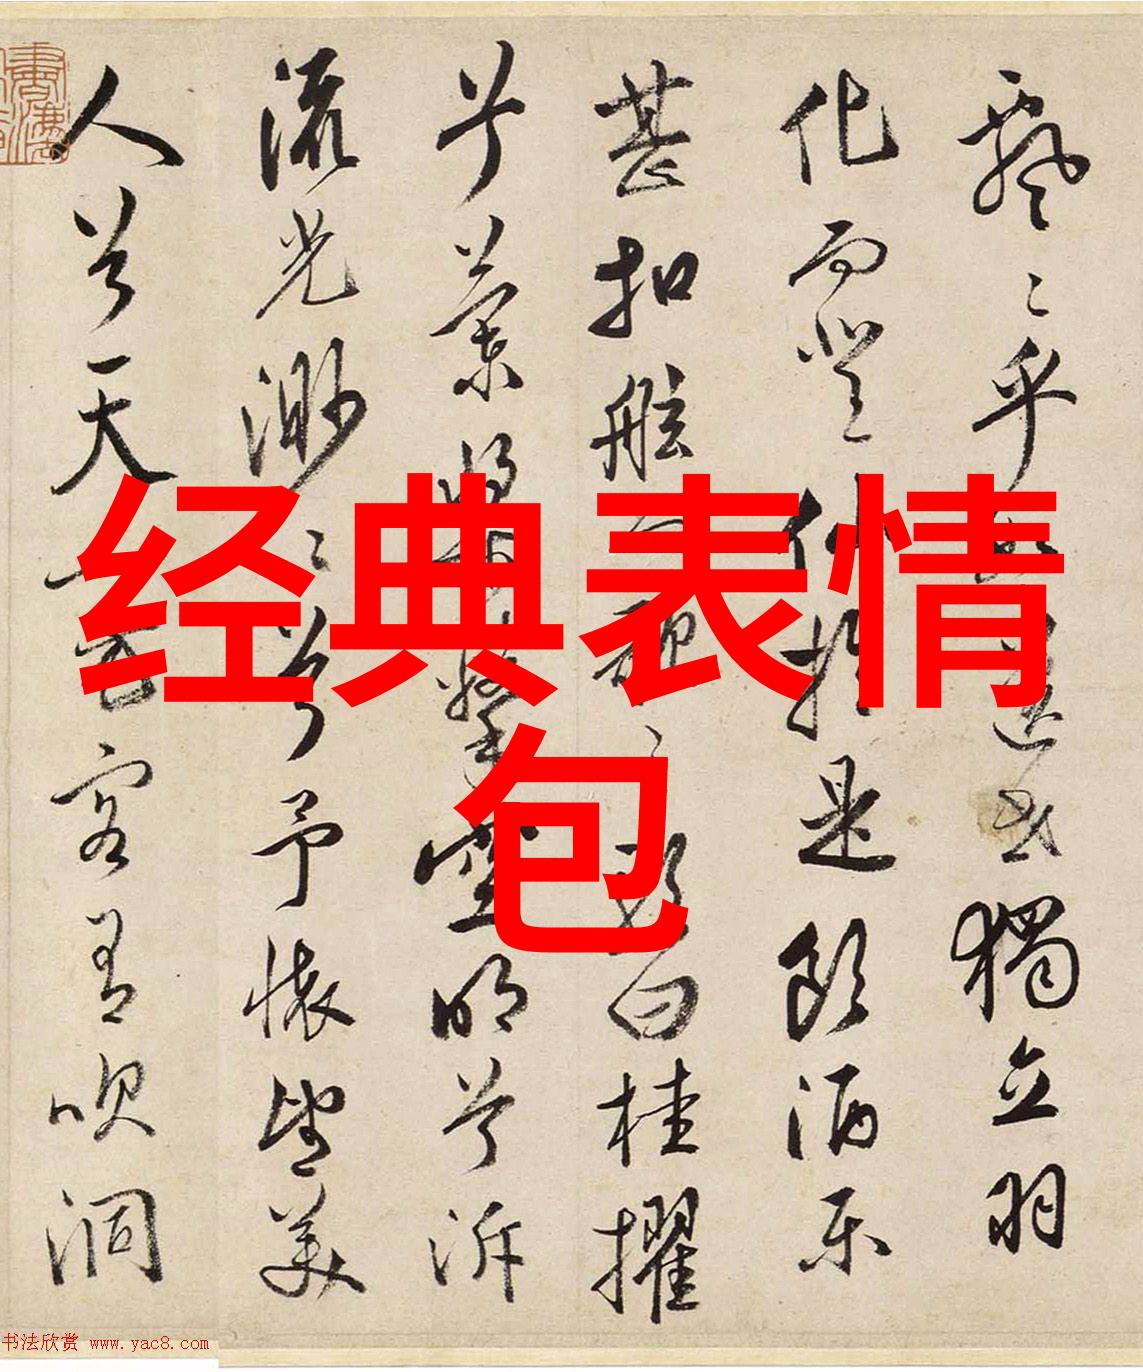 飄〻乎如遺世獨立羽
化而登仙於是飲酒樂
甚扣舷而歌之歌曰桂櫂
兮蘭槳兮擊空明兮泝
流光渺〻兮予懷望美
人兮天一方客有吹洞
经典表情
包
书法欣赏 www.yac8.com